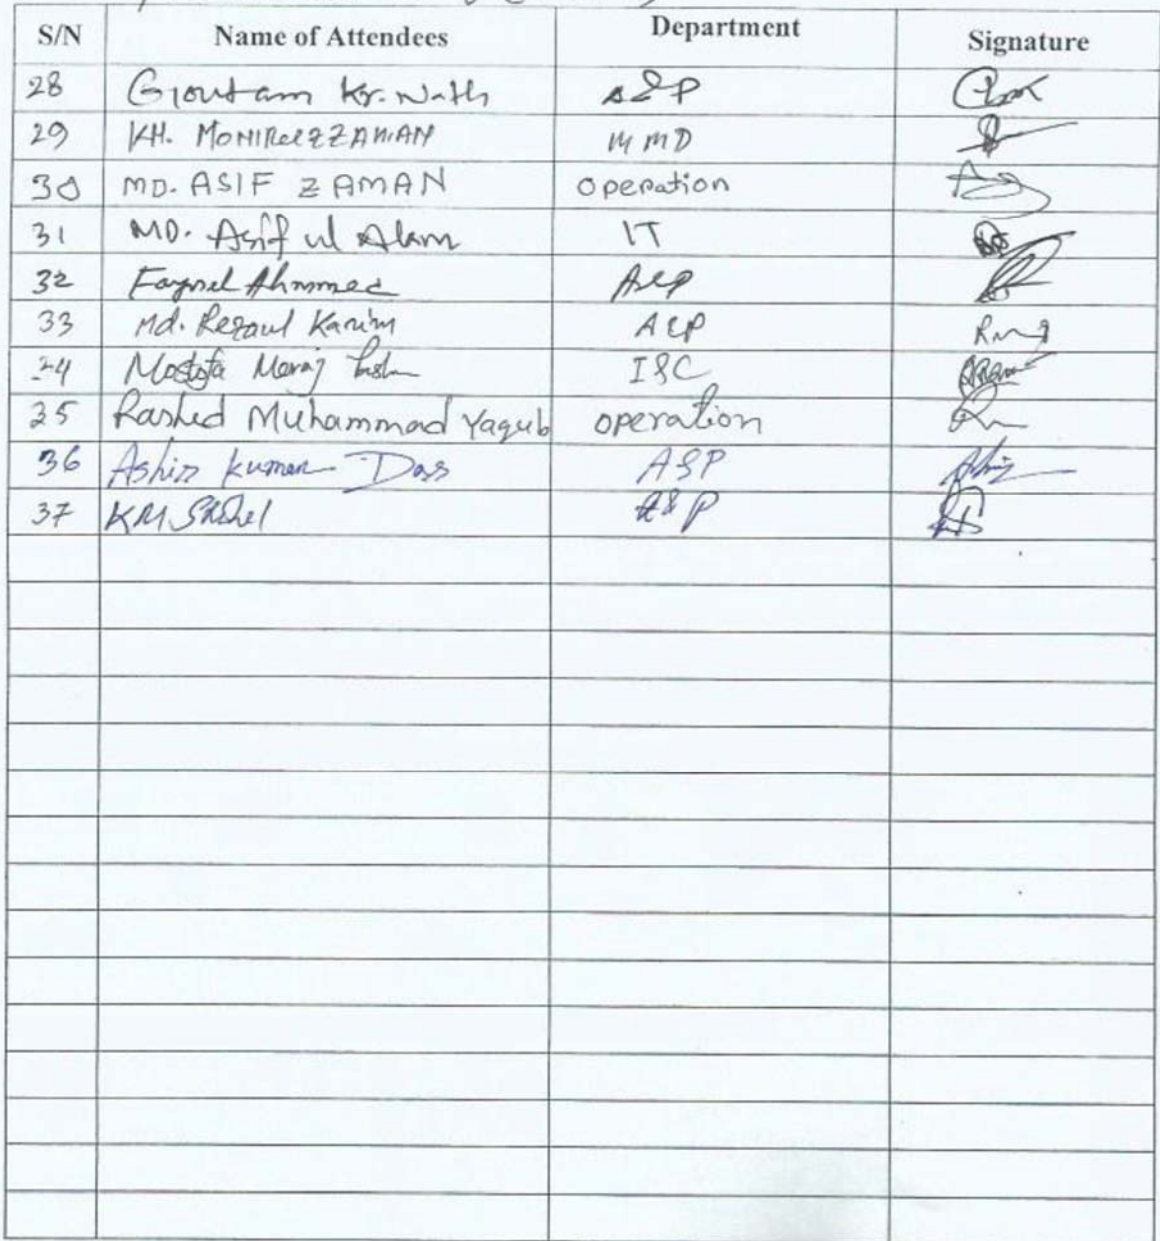 S/N Name of Attendees Department Signature
28 Goutam Kr. Nath A&P
29 KH. MONIRuzZAMAN MMD
30 MD. ASIF ZAMAN operation
31 MD. Asif ul Alam IT
32 Faysal Ahmmed A&P
33 Md. Rezaul Karim A&P
34 Mostofa Meraj I&C
35 Rashed Muhammad Yaqub operation
36 Ashis Kumar Das A&P
37 KM Sohel A&P